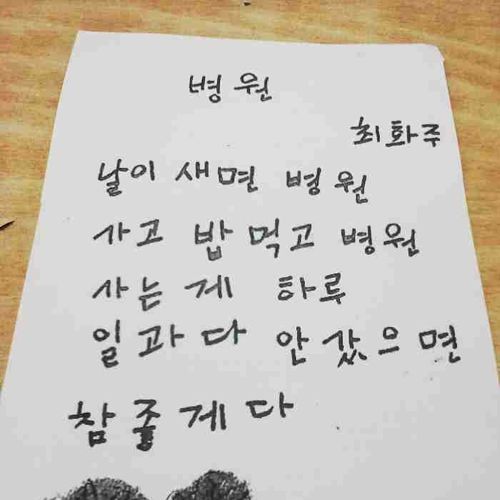 병원
최화주
날이 새면 병원
사고 밥먹고 병원
사는게 하루
일과다 안갔으면
참좋게다